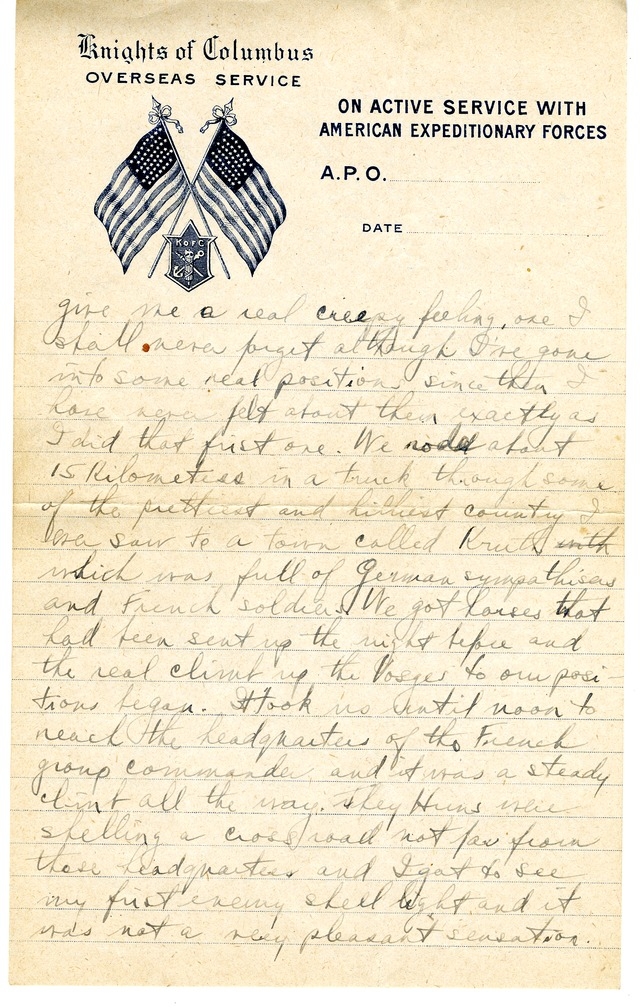 Knights of Columbus
OVERSEAS SERVICE
ON ACTIVE SERVICE WITH
AMERICAN EXPEDITIONARY FORCES
A.P.O.
DATE
K OF C
give me a real creepy feeling, one I
shall never forget although I've gone
into some real positions since then I
have never felt about them exactly as
I did that first one. We about
15 Kilometers in a truck through some
of the prettiest and hilliest country I
ever saw to a town called Kruth with
which was full of German sympathisers
and French soldiers. We got horses that
had been sent up the night before and
the real climb up the Vosges to our posi-
tions began. It took us until noon to
reach the headquarters of the French
group commander, and it was a steady
climb all the way. They Huns were
shelling a cross road not far from
these headquarters and I got to see
my first enemy shell light and it
was not a very pleasant sensation.